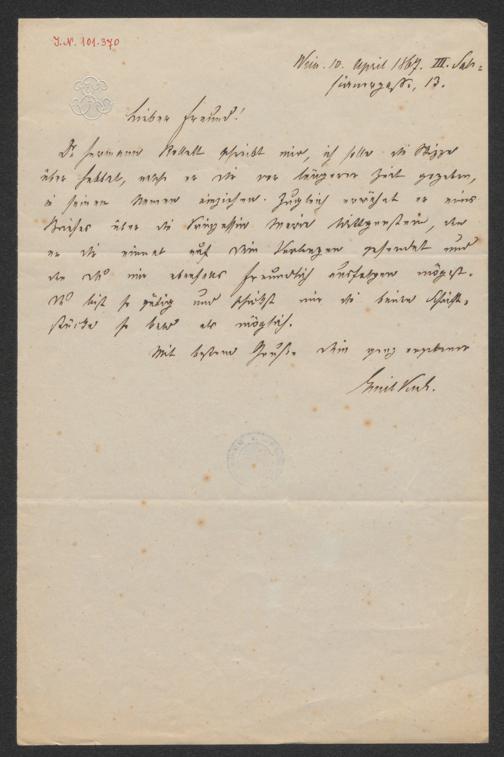 I.N. 101.370
Wien. 10. April 1867. III.
13.
Lieber Freund!
Dr Hermann Rollett schreibt mir, ich solle die Skizze
über Hebbel, welche er Dir vor längerer Zeit gegeben,
in seinem Namen einziehen. Zugleich erwähnt er eines
Buches über die Prinzessin Marie Wittgenstein, den
er Dir einmal auf Dein Verlangen gesendet und
den Du mir ebenfalls freundlich ausfolgen mögest.
Du bist so gütig und schickst mir die beiden Schrift-
stücke so bald als möglich.
Mit bestem Gruße Dein ganz ergebener
Emil